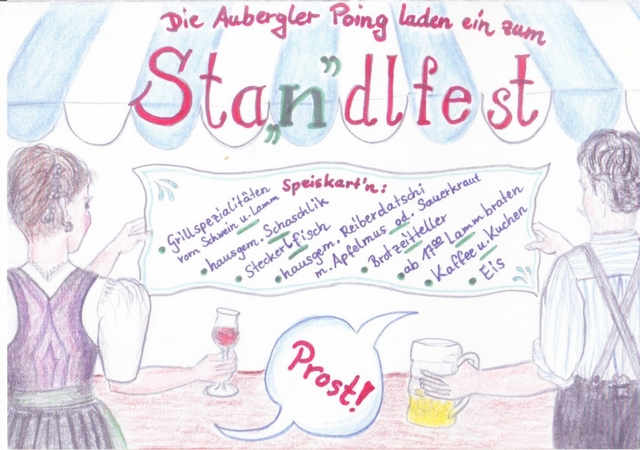 Die Aubergler Poing laden ein zum
Sta„n”dlfest
Speiskart'n:
Grillspezialitäten
vom Schwein u. Lamm
hausgem. Schaschlik
Steckerlfisch
hausgem. Reiberdatschi
m. Apfelmus od. Sauerkraut
Brotzeitteller
ab 17⁰⁰ Lammbraten
Kaffee u. Kuchen
Eis
Prost!